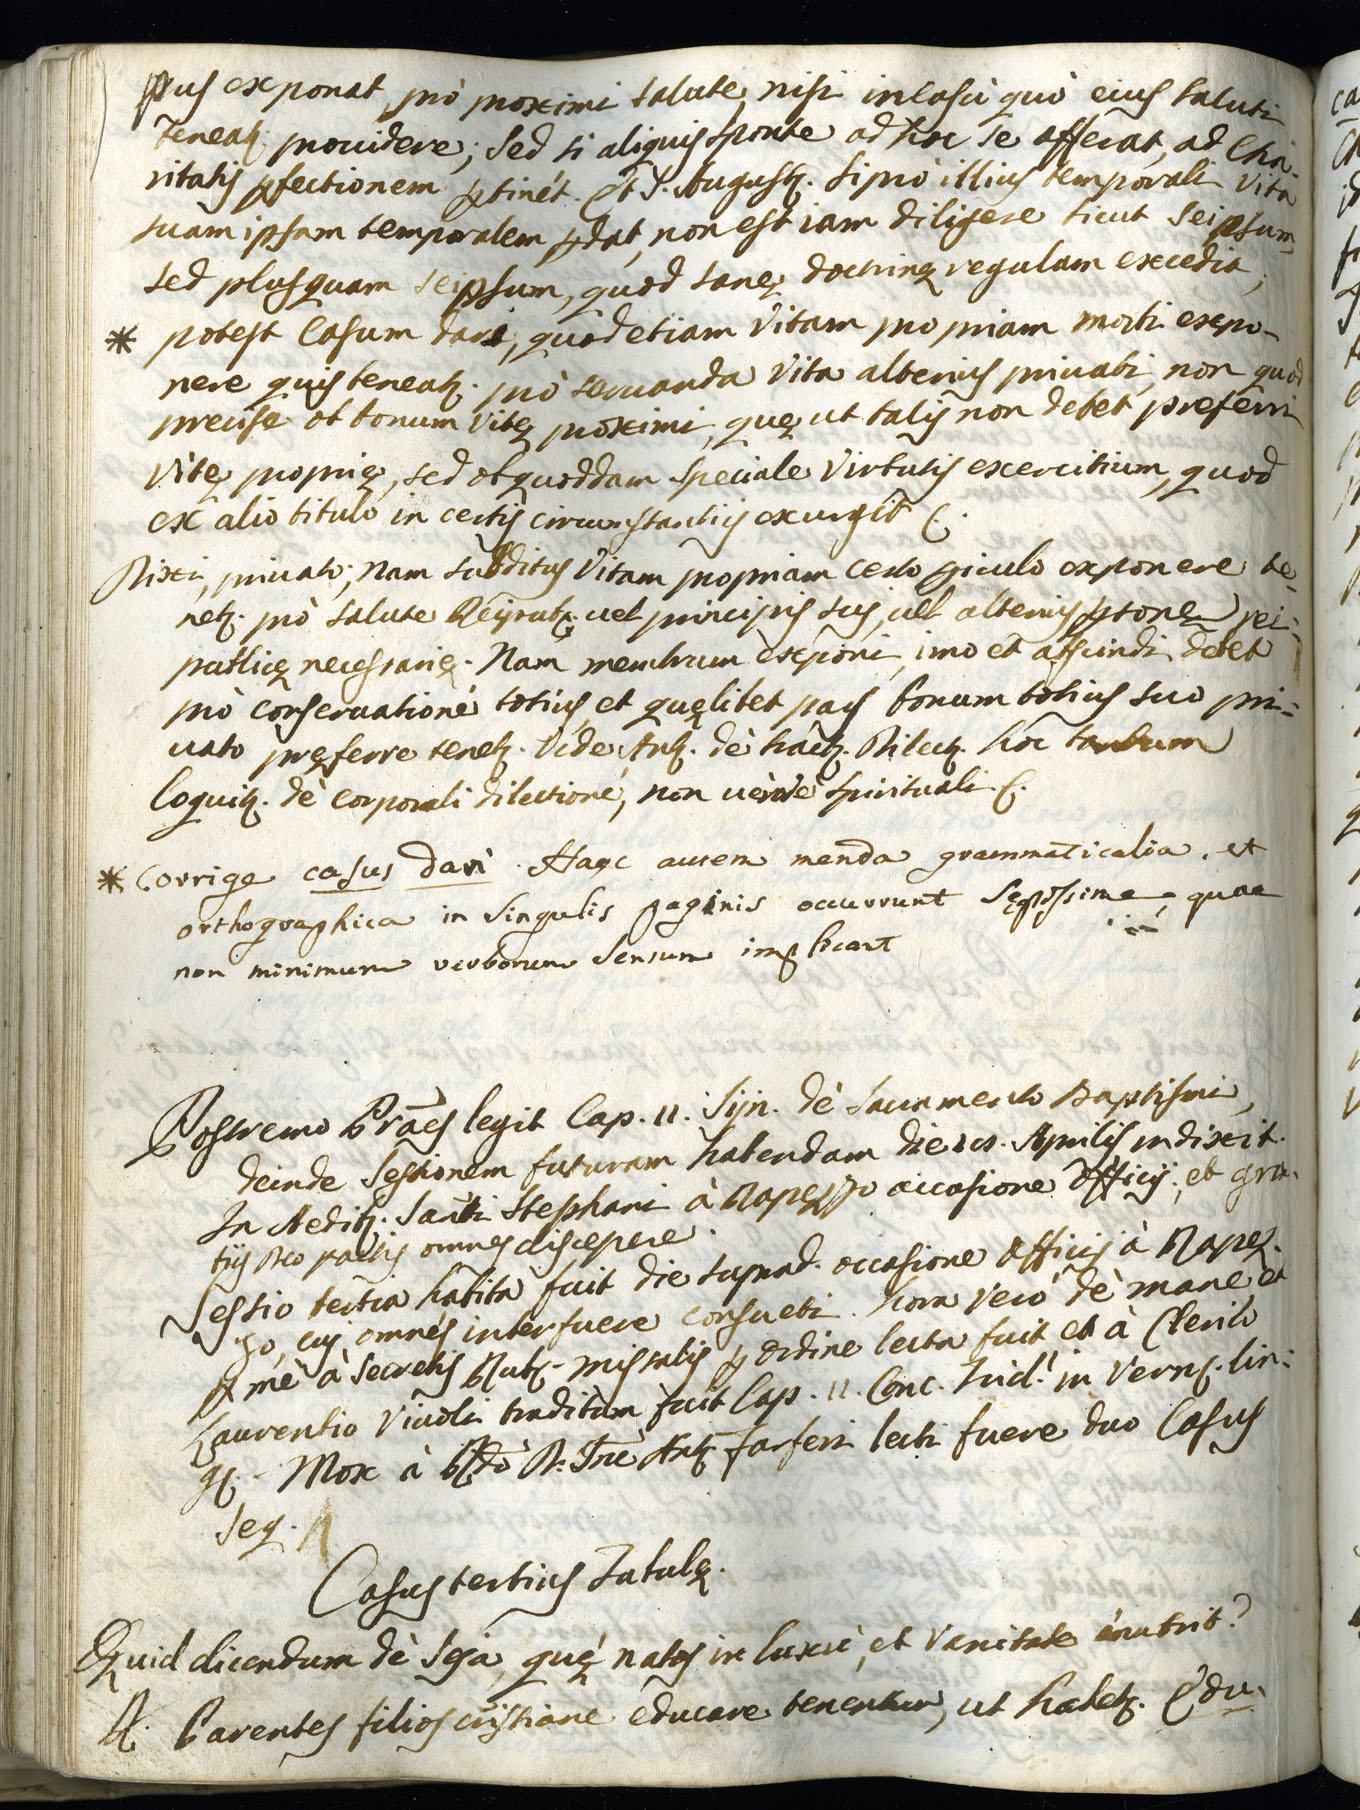 pus exponat prò proximi salute, nisi in casù quò eius saluti
teneat; providere; sed si aliquis sponte ad hoc se offerat, ad Cha-
ritatis pfectionem ptinét. Et S. August. si prò illius temporali vita
suam ipsam temporalem pdat, non est iam diligere sicut seipsum,
sed plusquam seipsum, quod sanę doctrinę regulam excedit;
* potest Casum dari, quod etiam vitam propriam morti expo-
nere quis teneatz. prò servanda vita alterius privati, non quod
precise ob bonum vitę proximi, quę ut talis non debet preferri
vitę proprię, sed ob quoddam speciale virtutis exercitium, quod
ex alio titulo in certis circumstantiis exurgit
Dixi, privato; nam subditus vitam propriam certo piculo exponere te-
netz. prò salute Reipub. vel principis sui, vel alterius psonę rei-
publicę necessarię. Nam membrum exponi, imo et abscindi debet
prò conservatione totius, et quęlibet pars bonum totius suo pri-
vato pręferre tenetz. Vide, Ant. dè Dilect. hoc tantum
loquitz. dè corporali dilectione, non verò dè spirituali
* Corrige casus dari. Haec autem menda grammaticalia, et
orthographica in singulis paginis occurrunt sępissime, quae
non minimum verborum sensum implicant
Postremo Prães legit Cap. 11. Syn. dè Sacramento Baptismi,
deinde Sessionem futuram habendam die Aprilis indixit.
In Aedib. Sancti Stephani à Rapezzo occasione Officij; et gra-
tijs Deo pactis omnes discepere.
Sessio tertia habita fuit die suprad. occasione Officij à Rapez-
zo, cuj omnes interfuere consueti. hora verò dè mane et
p mè à Secretis Rub. missalis p ordine lecta fuit, et à Clerico
Laurentio Vivoli traditum fuit Cap. 11. Conc. Trid. in Vern. lin-
g. Mox à Ant. Farferi lecti fuere duo Casus
seq.
Casus tertius Tabulę.
Quid dicendum dè quę natos in luxù, et vanitate enutrit?
R. Parentes filios cristiane educare tenentur, ut habetz. Edu-